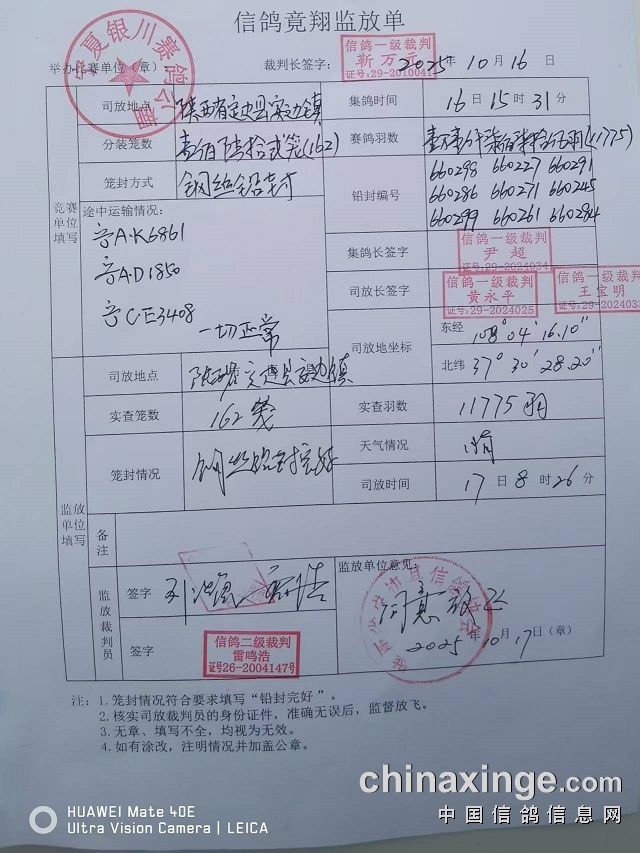 信鸽竞翔监放单
宁夏银川赛鸽公棚
举办比赛单位（章）
裁判长签字：
信鸽一级裁判
靳万
证号:29-2010041
2025年10月16日
竞赛单位填写
司放地点
陕西省定边县
集鸽时间
16日15时31分
分装笼数
壹佰陆拾贰笼(162)
赛鸽羽数
壹万壹仟柒佰柒拾伍羽(11775)
笼封方式
钢丝铅封
铅封编号
660298 660227 660291
660286 660271 660245
660299 660261 660284
途中运输情况：
宁A·K6861
宁A·D1850
宁C·E3408
一切正常
集鸽长签字
信鸽一级裁判
尹超
证号:29-2024034
司放长签字
信鸽一级裁判
黄永平
证号:29-2024025
信鸽一级裁判
王宝明
证号:29-202403
司放地坐标
东经
108°04′16.10″
北纬
37°30′28.20″
监放单位填写
司放地点
陕西省定边县定边镇
实查笼数
162笼
实查羽数
11775羽
笼封情况
钢丝铅封完好
天气情况
晴
司放时间
17日8时26分
备注
监放裁判员
签字
签字
信鸽二级裁判
雷鸣浩
证号26-2004147号
监放单位意见：
同意放飞
2025年10月17日（章）
注：1. 笼封情况符合要求填写“铅封完好”。
2. 核实司放裁判员的身份证件，准确无误后，监督放飞。
3. 无章、填写不全，均视为无效。
4. 如有涂改，注明情况并加盖公章。
HUAWEI Mate 40E
Ultra Vision Camera | LEICA
chinaxinge.com
中国信鸽信息网